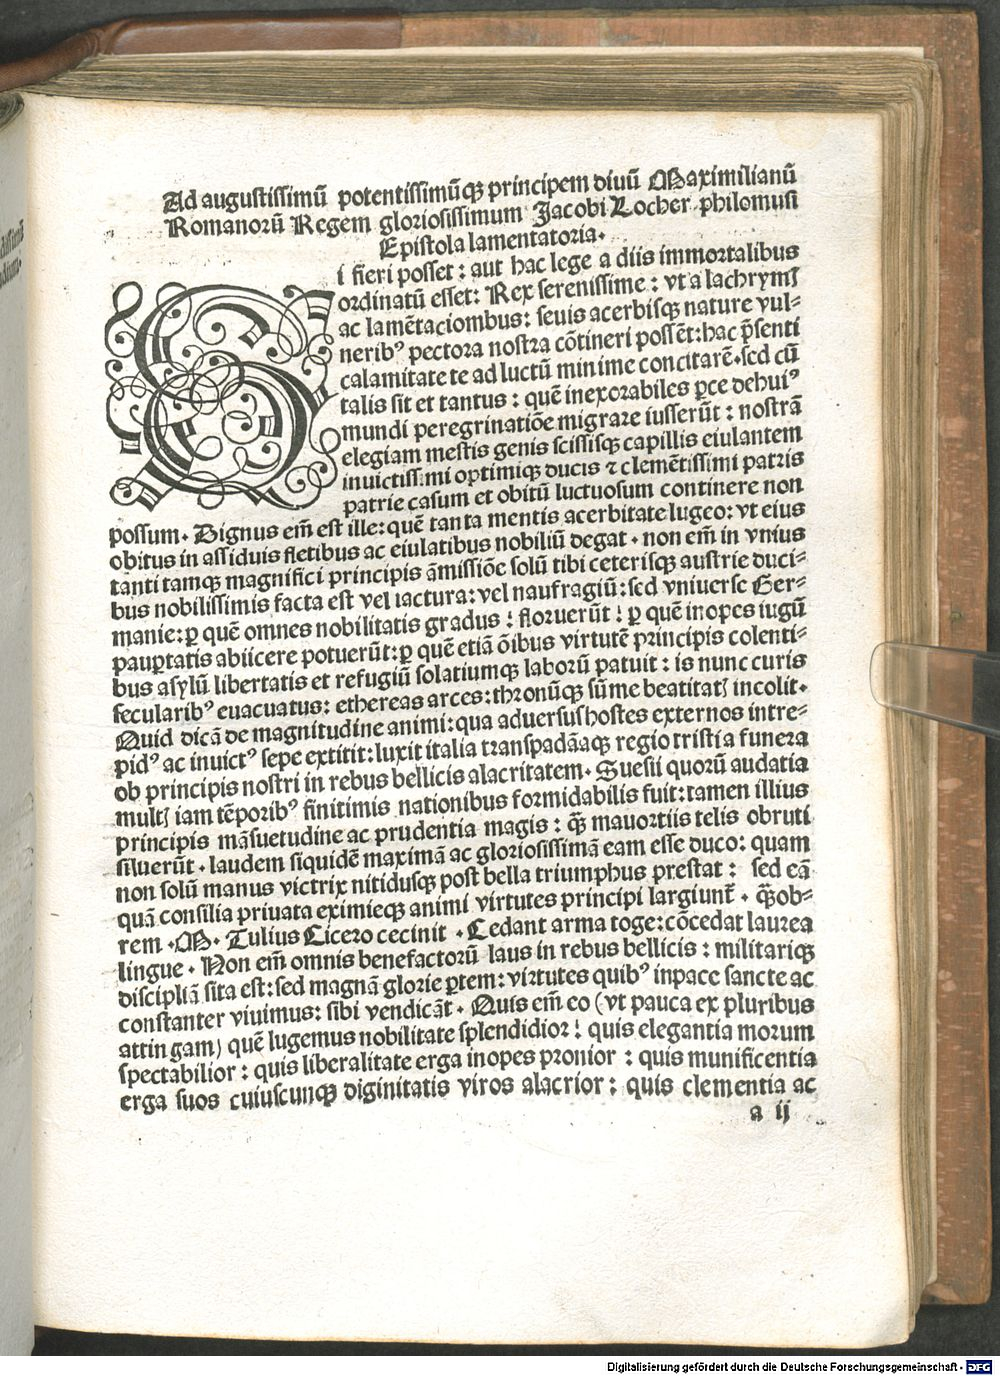 Ad augustissimū potentissimūqꝫ principem diuū Maximilianū
Romanorū Regem gloriosissimum Jacobi Locher philomusi
Epistola lamentatoria.
Si fieri posset: aut hac lege a diis immortalibus
ordinatū esset: Rex serenissime: vt a lachrymꝭ
ac lamētaciombus: seuis acerbisqꝫ nature vul⸗
neribꝰ pectora nostra cōtineri possēt: hac p̄senti
calamitate te ad luctū minime concitarē. sed cū
talis sit et tantus: quē inexorabiles ꝑce dehuiꝰ
mundi peregrinatiōe migrare iusserūt: nostrā
elegiam mestis genis scissisqꝫ capillis eiulantem
inuictissimi optimiqꝫ ducis ⁊ clemētissimi patris
patrie casum et obitū luctuosum continere non
possum. Dignus em̄ est ille: quē tanta mentis acerbitate lugeo: vt eius
obitus in assiduis fletibus ac eiulatibus nobiliū degat. non em̄ in vnius
tanti tamqꝫ magnifici principis āmissiōe solū tibi ceterisqꝫ austrie duci⸗
bus nobilissimis facta est vel iactura: vel naufragiū: sed vniuerse Ger⸗
manie: ꝑ quē omnes nobilitatis gradus! floruerūt! ꝑ quē inopes iugū
pauꝑtatis abiicere potuerūt: ꝑ quē etiā ōibus virtutē principis colenti⸗
bus asylū libertatis et refugiū solatiumqꝫ laborū patuit: is nunc curis
secularibꝰ euacuatus: ethereas arces: thronūqꝫ sūme beatitatꝭ incolit.
Quid dicā de magnitudine animi: qua aduersus hostes externos intre⸗
pidꝰ ac inuictꝰ sepe extitit: luxit italia transpadāaqꝫ regio tristia funera
ob principis nostri in rebus bellicis alacritatem. Suesii quorū audatia
multꝭ iam tēporibꝰ finitimis nationibus formidabilis fuit: tamen illius
principis māsuetudine ac prudentia magis: qꝫ̄ mauortiis telis obruti
siluerūt. laudem siquidē maximā ac gloriosissimā eam esse duco: quam
non solū manus victrix nitidusqꝫ post bella triumphus prestat: sed eā
quā consilia priuata eximieqꝫ animi virtutes principi largiunt̄. qꝫ̄ob⸗
rem. M. Tulius Cicero cecinit. Cedant arma toge: cōcedat laurea
lingue. Non em̄ omnis benefactorū laus in rebus bellicis: militariqꝫ
disciplīa sita est: sed magnā glorie ꝑtem: virtutes quibꝰ inpace sancte ac
constanter viuimus: sibi vendicāt. Quis em̄ eo (vt pauca ex pluribus
attingam) quē lugemus nobilitate splendidior! quis elegantia morum
spectabilior: quis liberalitate erga inopes pronior: quis munificentia
erga suos cuiuscunqꝫ diginitatis viros alacrior: quis clementia ac
a ij
Digitalisierung gefördert durch die Deutsche Forschungsgemeinschaft - DFG